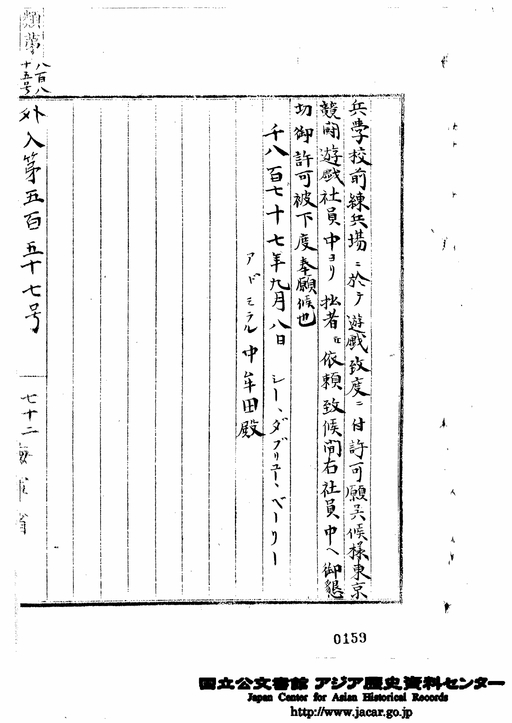 兵學校前練兵場ニ於テ遊戯致度ニ付許可願呉候様東京
競鬪遊戯社員中ヨリ拙者ニ依頼致候間右社員中ヘ御懇
切御許可被下度奉願候也
千八百七十七年九月八日 シー、ダブリユー、ベーリー
アドミラル中牟田殿
外入第五百五十七号
八百八
十五号
七十二
海軍省
0159
国立公文書館 アジア歴史資料センター
Japan Center for Asian Historical Records
http://www.jacar.go.jp